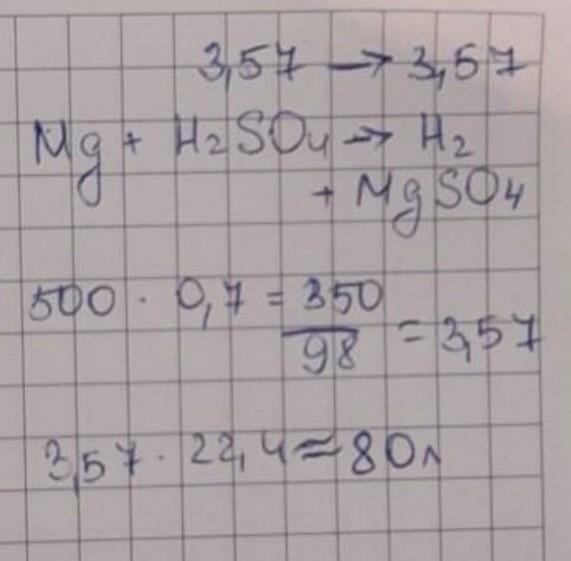 3,57 → 3,57
Mg + H₂SO₄ → H₂
+ MgSO₄
500 · 0,7 = 350
98
= 3,57
3,57 · 22,4 ≈ 80л